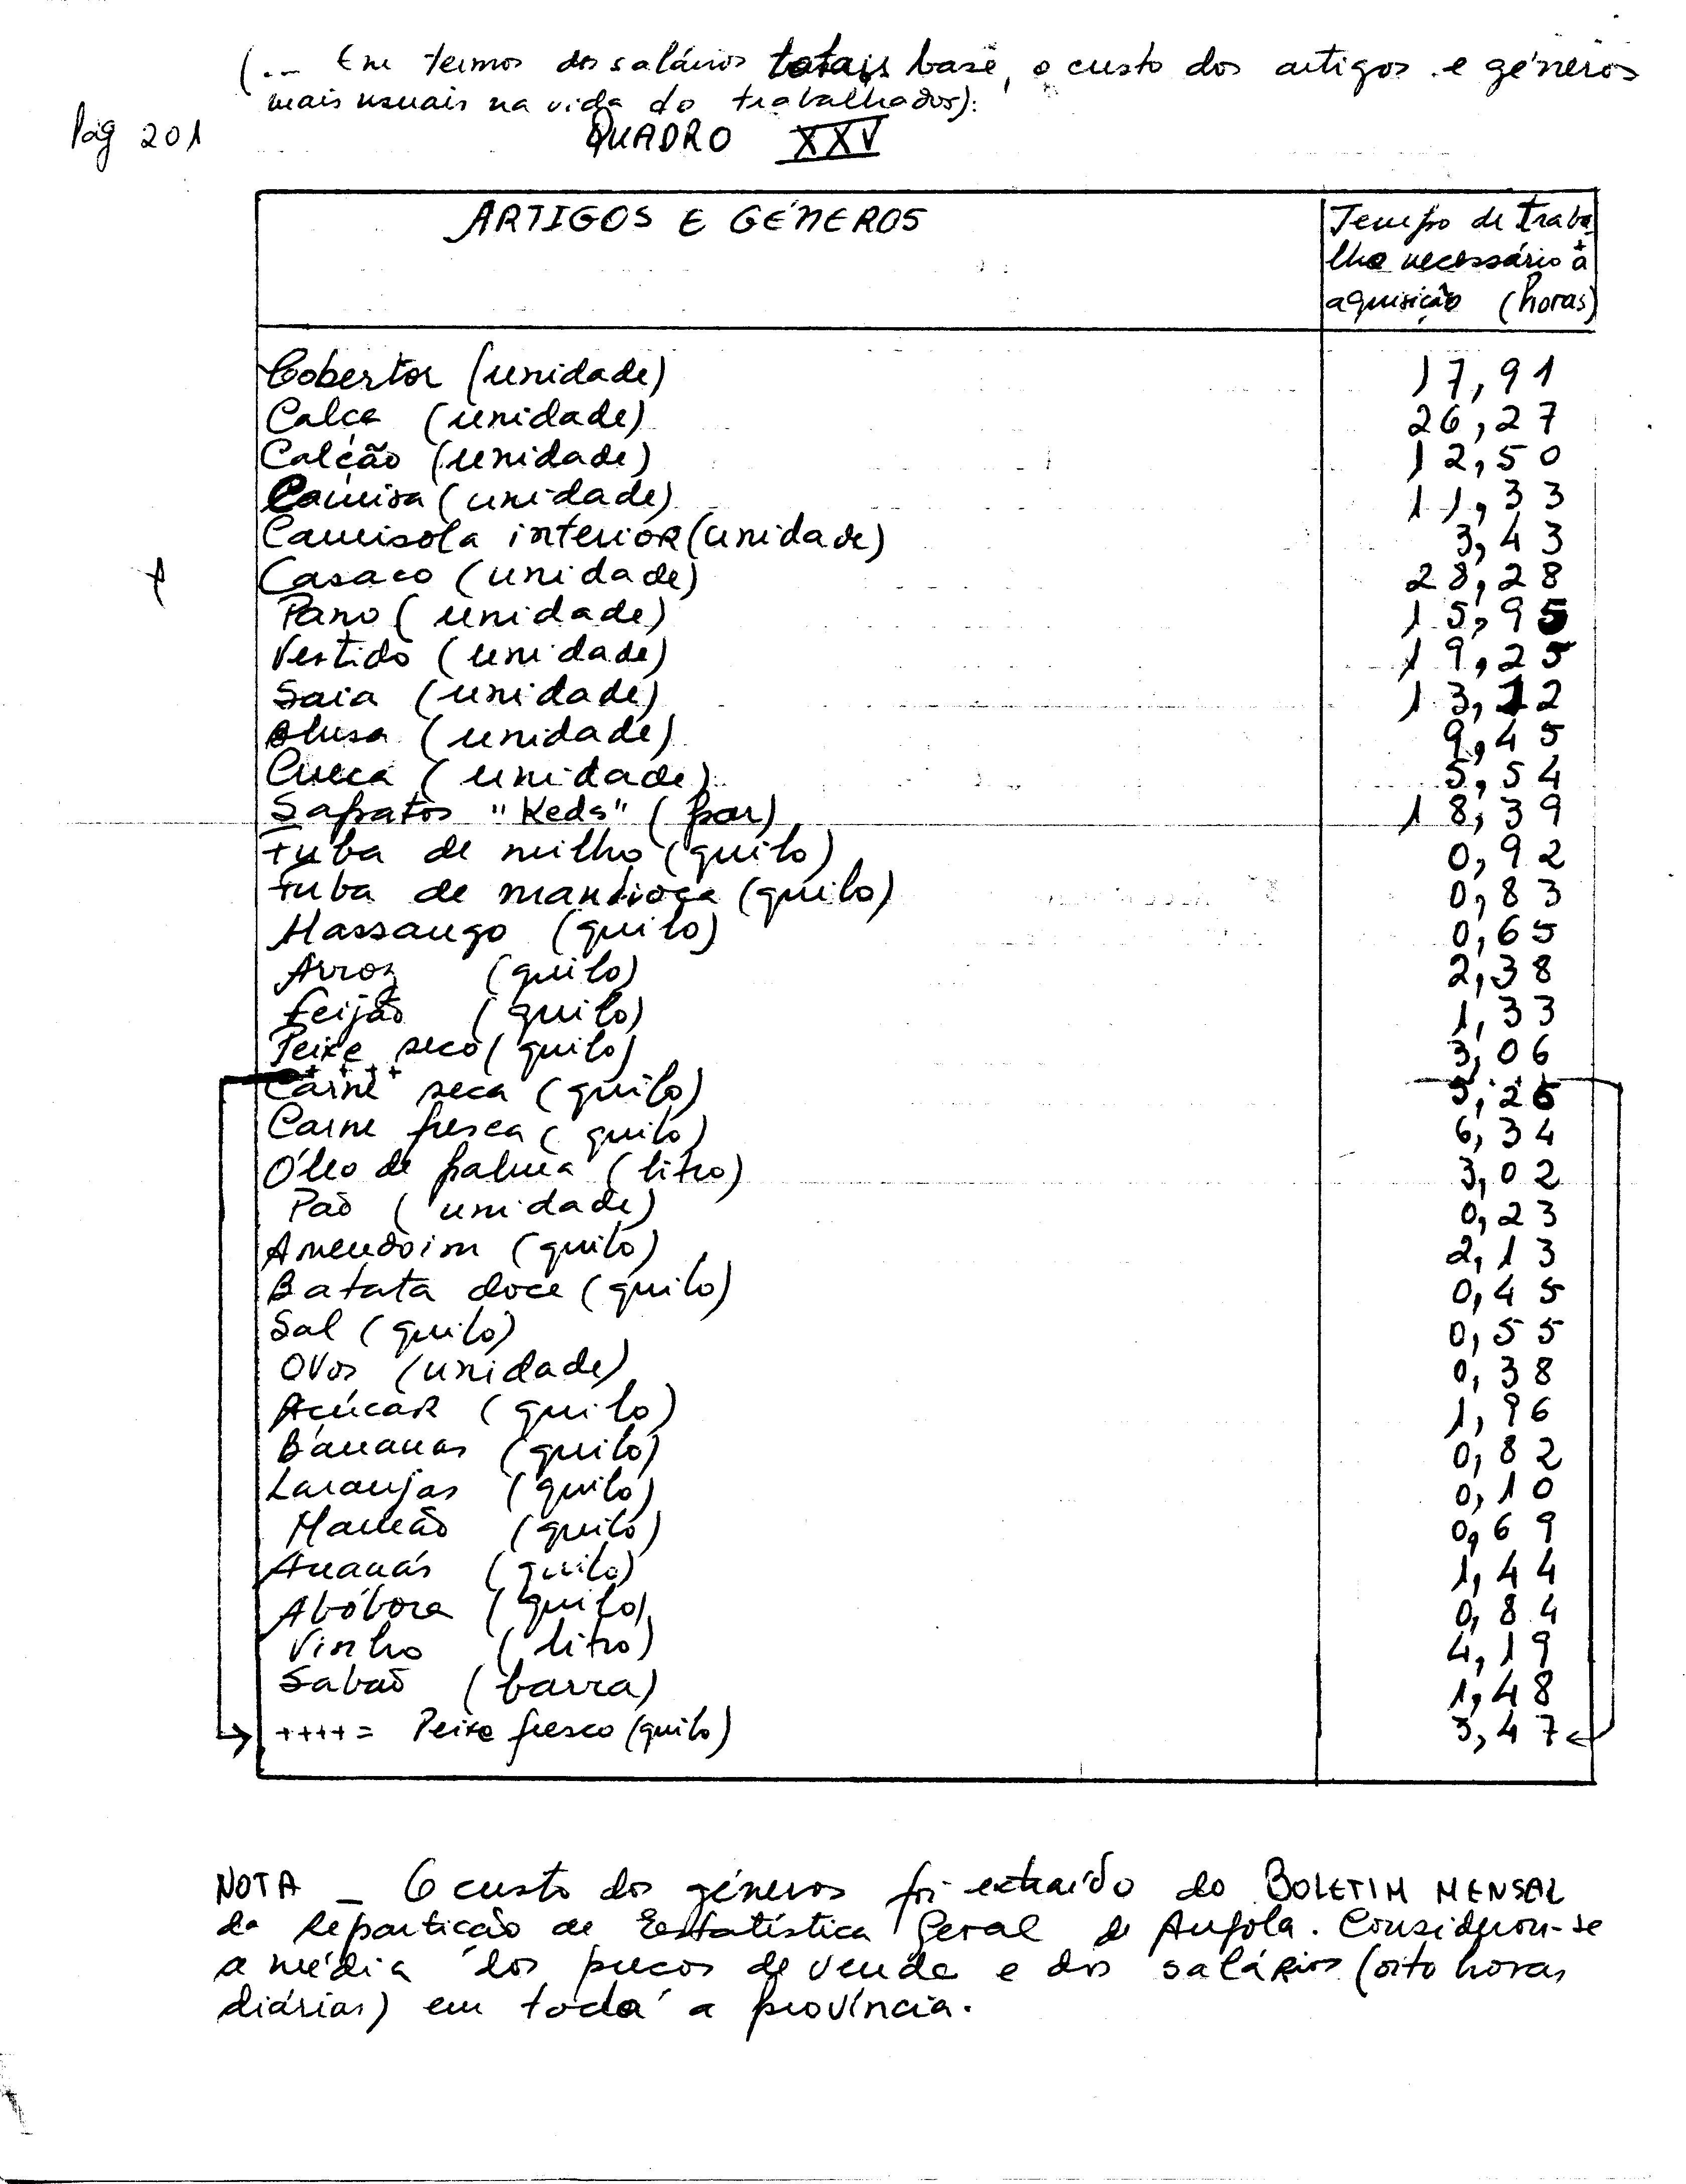 (... Em termos dos salários totais base, o custo dos artigos e géneros
mais usuais na vida do trabalhador):
Pág 201
QUADRO XXV
ARTIGOS E GÉNEROS
Tempo de traba
lho necessário à
aquisição (horas)
Cobertor (unidade) 17,91
Calça (unidade) 26,27
Calção (unidade) 12,50
Camisa (unidade) 11,33
Camisola interior (unidade) 3,43
Casaco (unidade) 28,28
Pano (unidade) 15,95
Vestido (unidade) 19,25
Saia (unidade) 13,12
Blusa (unidade) 9,45
Cueca (unidade) 5,54
Sapatos "Keds" (par) 18,39
Fuba de milho (quilo) 0,92
Fuba de mandioca (quilo) 0,83
Massango (quilo) 0,65
Arroz (quilo) 2,38
Feijão (quilo) 1,33
Peixe seco (quilo) 3,06
++++
Carne seca (quilo) 5,26
Carne fresca (quilo) 6,34
Óleo de palma (litro) 3,02
Pão (unidade) 0,23
Amendoim (quilo) 2,13
Batata doce (quilo) 0,45
Sal (quilo) 0,55
Ovos (unidade) 0,38
Açúcar (quilo) 1,96
Bananas (quilo) 0,82
Laranjas (quilo) 0,10
Mamão (quilo) 0,69
Ananás (quilo) 1,44
Abóbora (quilo) 0,84
Vinho (litro) 4,19
Sabão (barra) 1,48
++++ = Peixe fresco (quilo) 3,47
NOTA - O custo dos géneros foi extraído do BOLETIM MENSAL
da Repartição de Estatística Geral de Angola. Considerou-se
a média dos preços de venda e dos salários (oito horas
diárias) em toda a província.